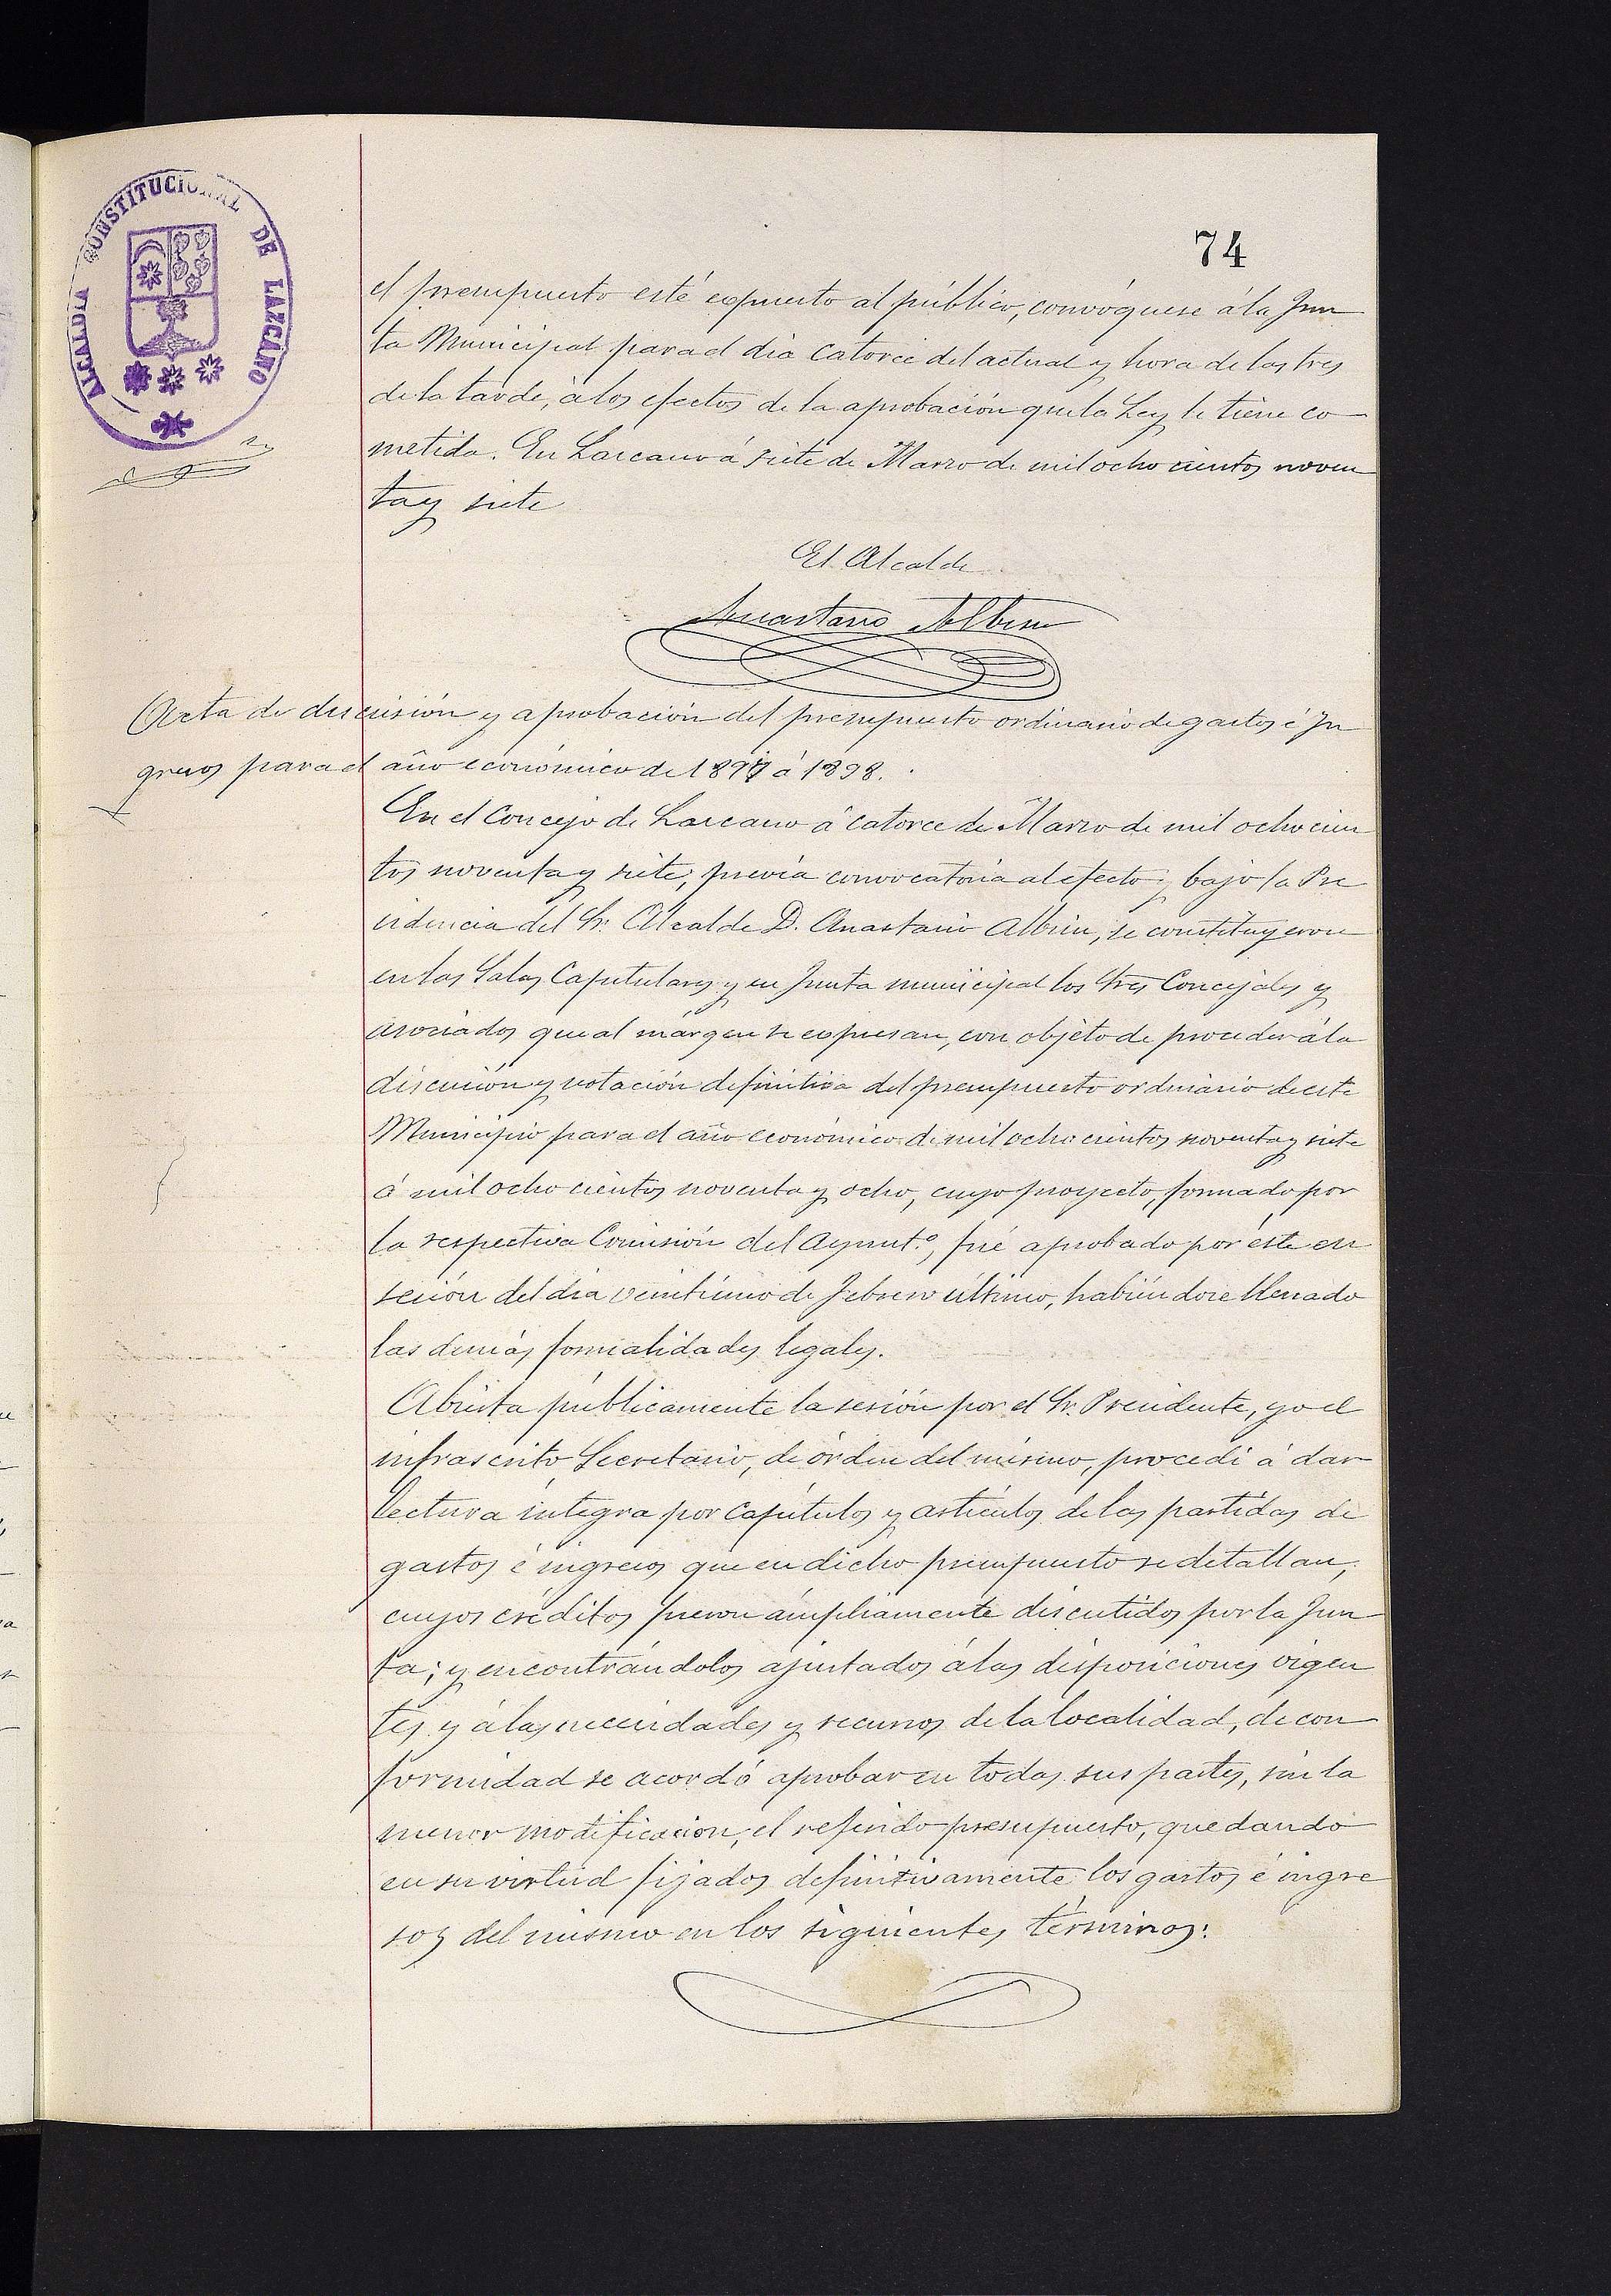 ALCALDIA CONSTITUCIONAL DE LAZCANO
74
el presupuesto esté expuesto al público, convóquese á la Jun
ta Municipal para el dia catorce del actual y hora de las tres
de la tarde, á los efectos de la aprobación que la Ley le tiene co
metida. En Lazcano á siete de Marzo de mil ocho cientos noven
ta y siete
El Alcalde
Anastasio Albisu
Acta de discusión y aprobación del presupuesto ordinario de gastos é In
gresos para el año económico de 1897 á 1898.
En el Concejo de Lazcano á catorce de Marzo de mil ochocien
tos noventa y siete, prévia convocatoria al efecto y bajo la Pre
sidencia del Sr. Alcalde D. Anastasio Albisu, se constituyeron
en las Salas Capitulares y en Junta municipal los Sres Concejales y
asociados que al márgen se expresan, con objeto de proceder á la
discusión y votación definitiva del presupuesto ordinario de este
Municipio para el año económico de mil ocho cientos noventa y siete
á mil ocho cientos noventa y ocho, cuyo proyecto, formado por
la respectiva Comisión del Ayunt.º, fué aprobado por éste en
sesión del dia veintiuno de Febrero último, habiéndose llenado
las demás formalidades legales.
Abierta públicamente la sesión por el Sr. Presidente, yo el
infrascrito Secretario, de órden del mismo, procedí á dar
lectura íntegra por capítulos y artículos de las partidas de
gastos é ingresos que en dicho presupuesto se detallan,
cuyos créditos fueron ámpliamente discutidos por la Jun
ta; y encontrándolos ajustados á las disposiciones vigen
tes y á las necesidades y recursos de la localidad, de con
formidad se acordó aprobar en todas sus partes, sin la
menor modificacion, el referido presupuesto, quedando
en su virtud fijados definitivamente los gastos é ingre
sos del mismo en los siguientes términos: